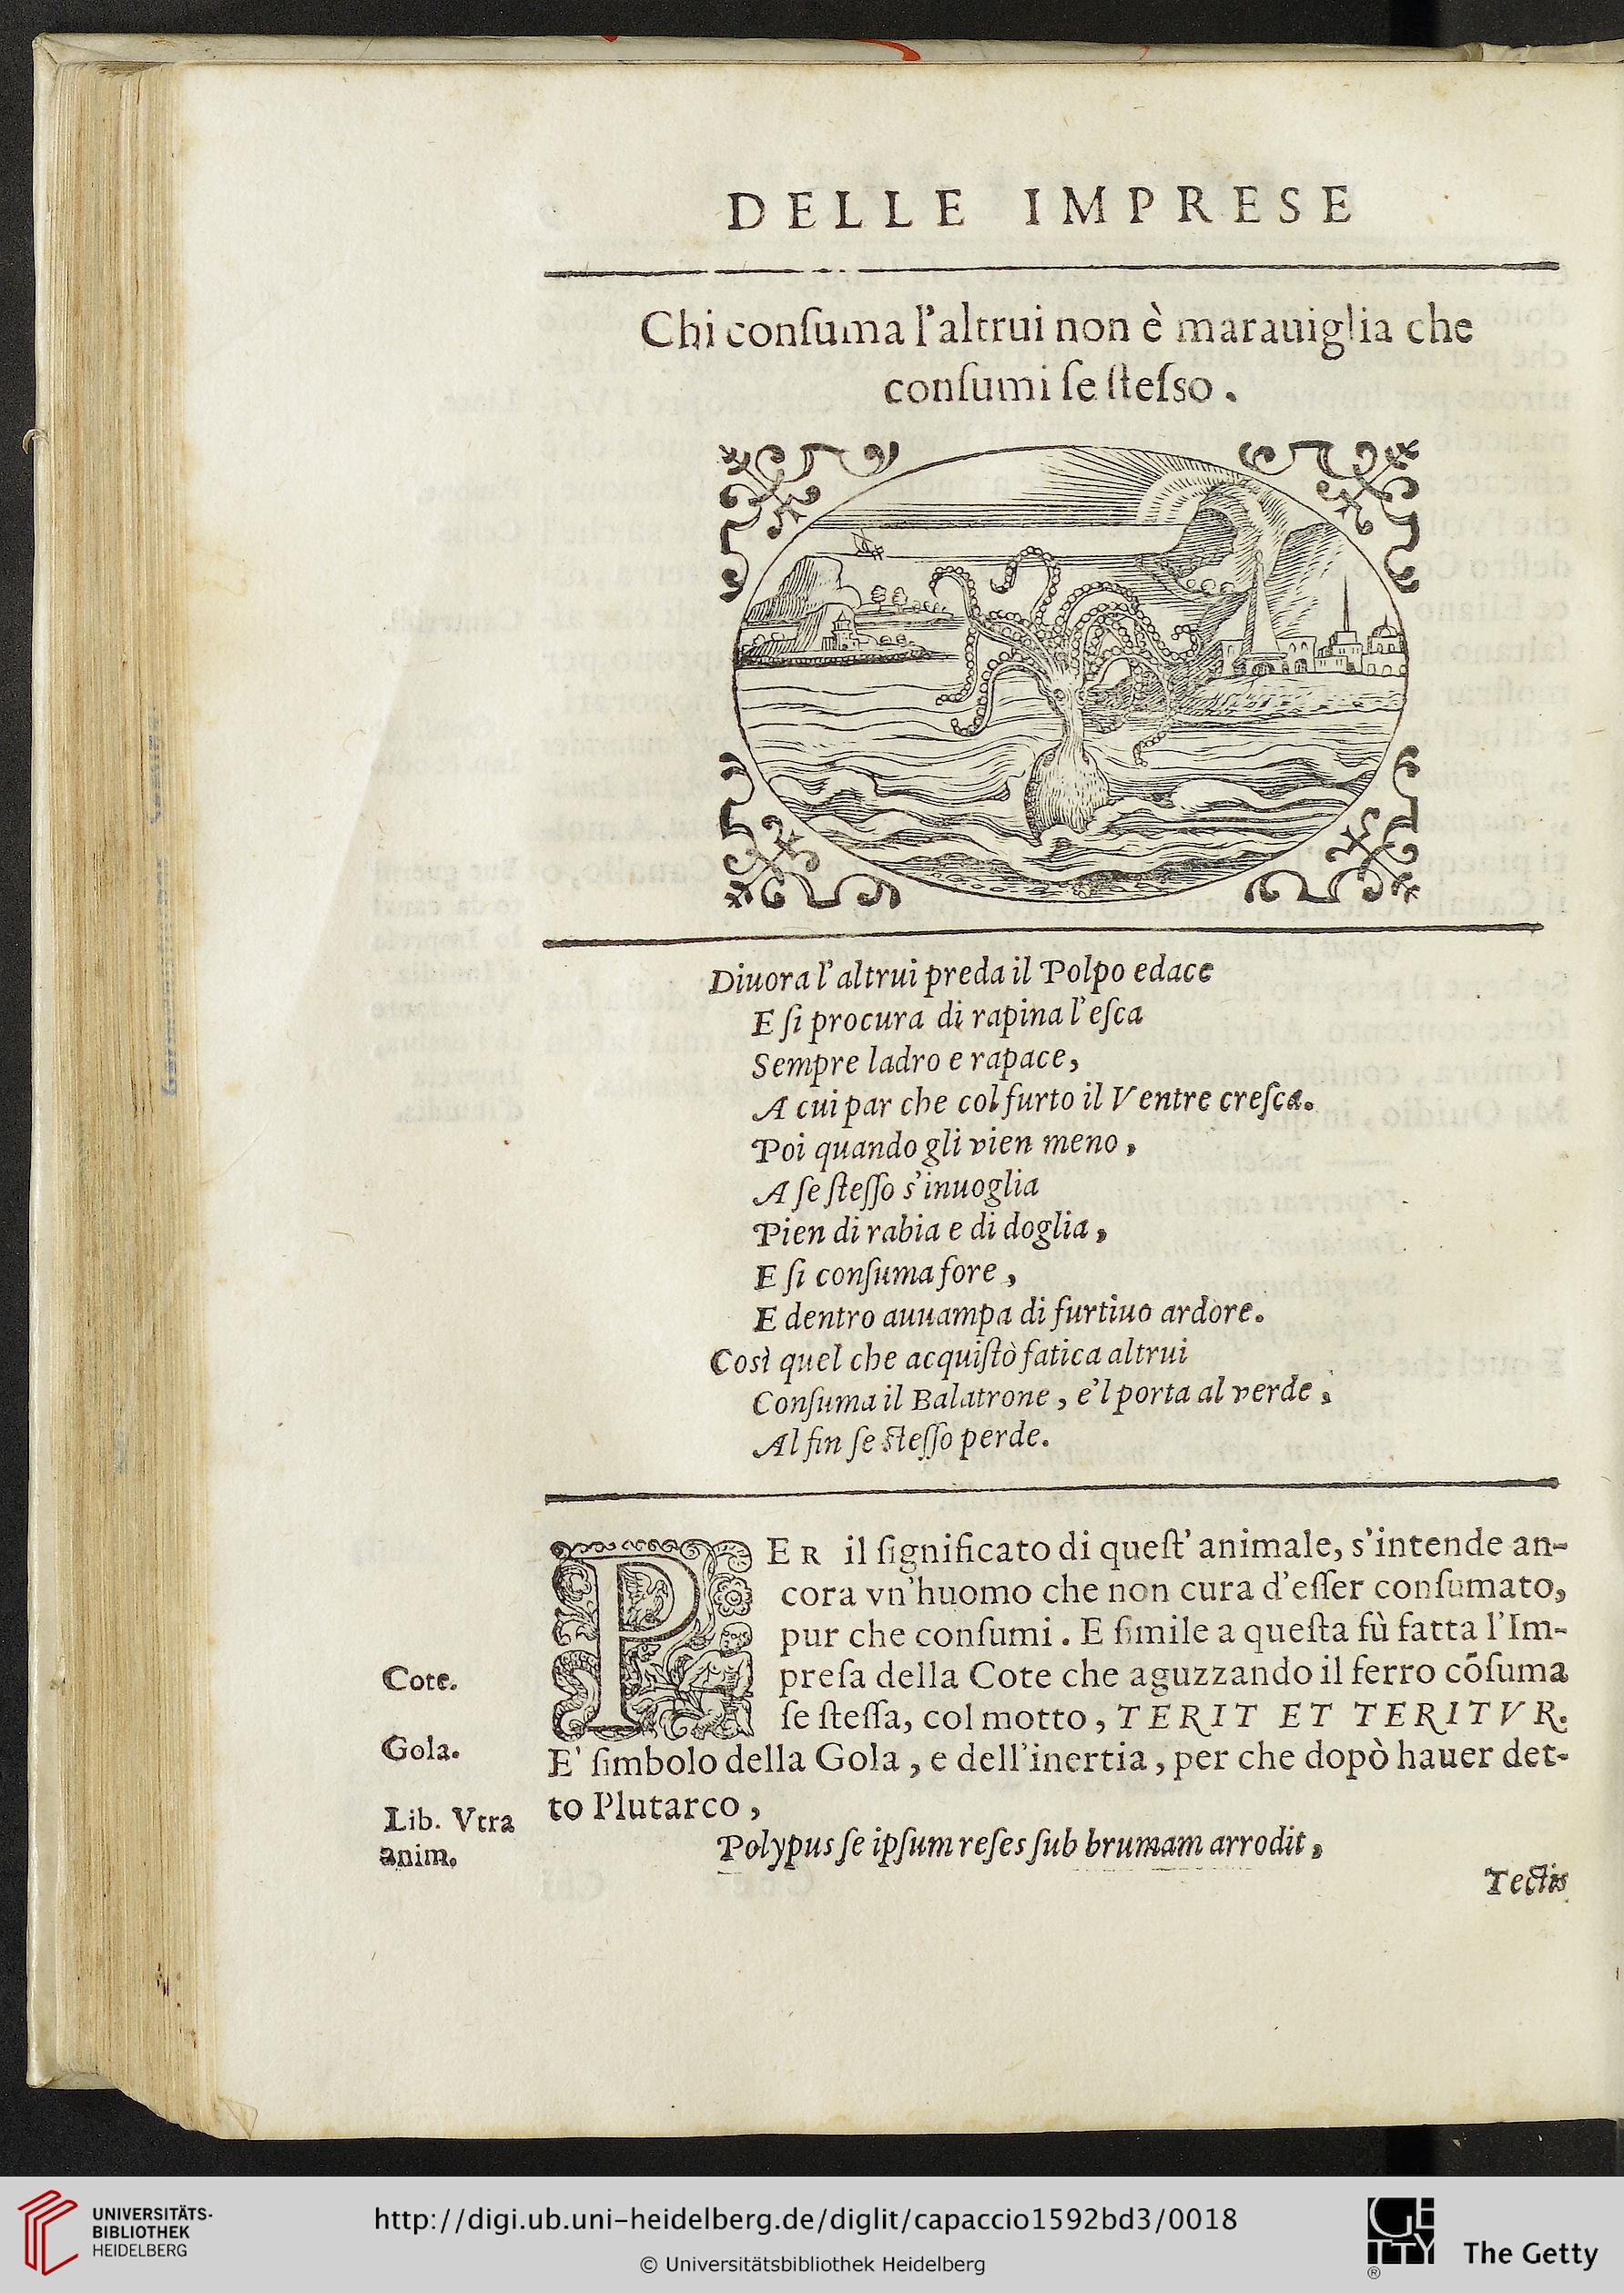 DELLE IMPRESE
Chi conſuma l'altrui non è marauiglia che
conſumi ſe ſteſso.
Diuora l'altrui preda il Polpo edace
E ſi procura di rapina l'eſca
Sempre ladro e rapace,
A cui par che col furto il Ventre creſca.
Poi quando gli vien meno,
A ſe ſteſſo s'inuoglia
Pien di rabia e di doglia,
E ſi conſuma fore,
E dentro auuampa di furtiuo ardore.
Così quel che acquiſtò fatica altrui
Conſuma il Balatrone, e'l porta al verde,
Al fin ſe ſteſſo perde.
PER il ſignificato di queſt'animale, s'intende an-
cora vn'huomo che non cura d'eſſer conſumato,
pur che conſumi. E ſimile a queſta fù fatta l'Im-
preſa della Cote che aguzzando il ferro cõſuma
ſe ſteſſa, col motto, TERIT ET TERITVR.
E' ſimbolo della Gola, e dell'inertia, per che dopò hauer det-
to Plutarco,
Polypus ſe ipſum reſes ſub brumam arrodit,
Tectis
Cote.
Gola.
Lib. Vtra
anim.
UNIVERSITÄTS-
BIBLIOTHEK
HEIDELBERG
http://digi.ub.uni-heidelberg.de/diglit/capaccio1592bd3/0018
© Universitätsbibliothek Heidelberg
GETTY
®
The Getty